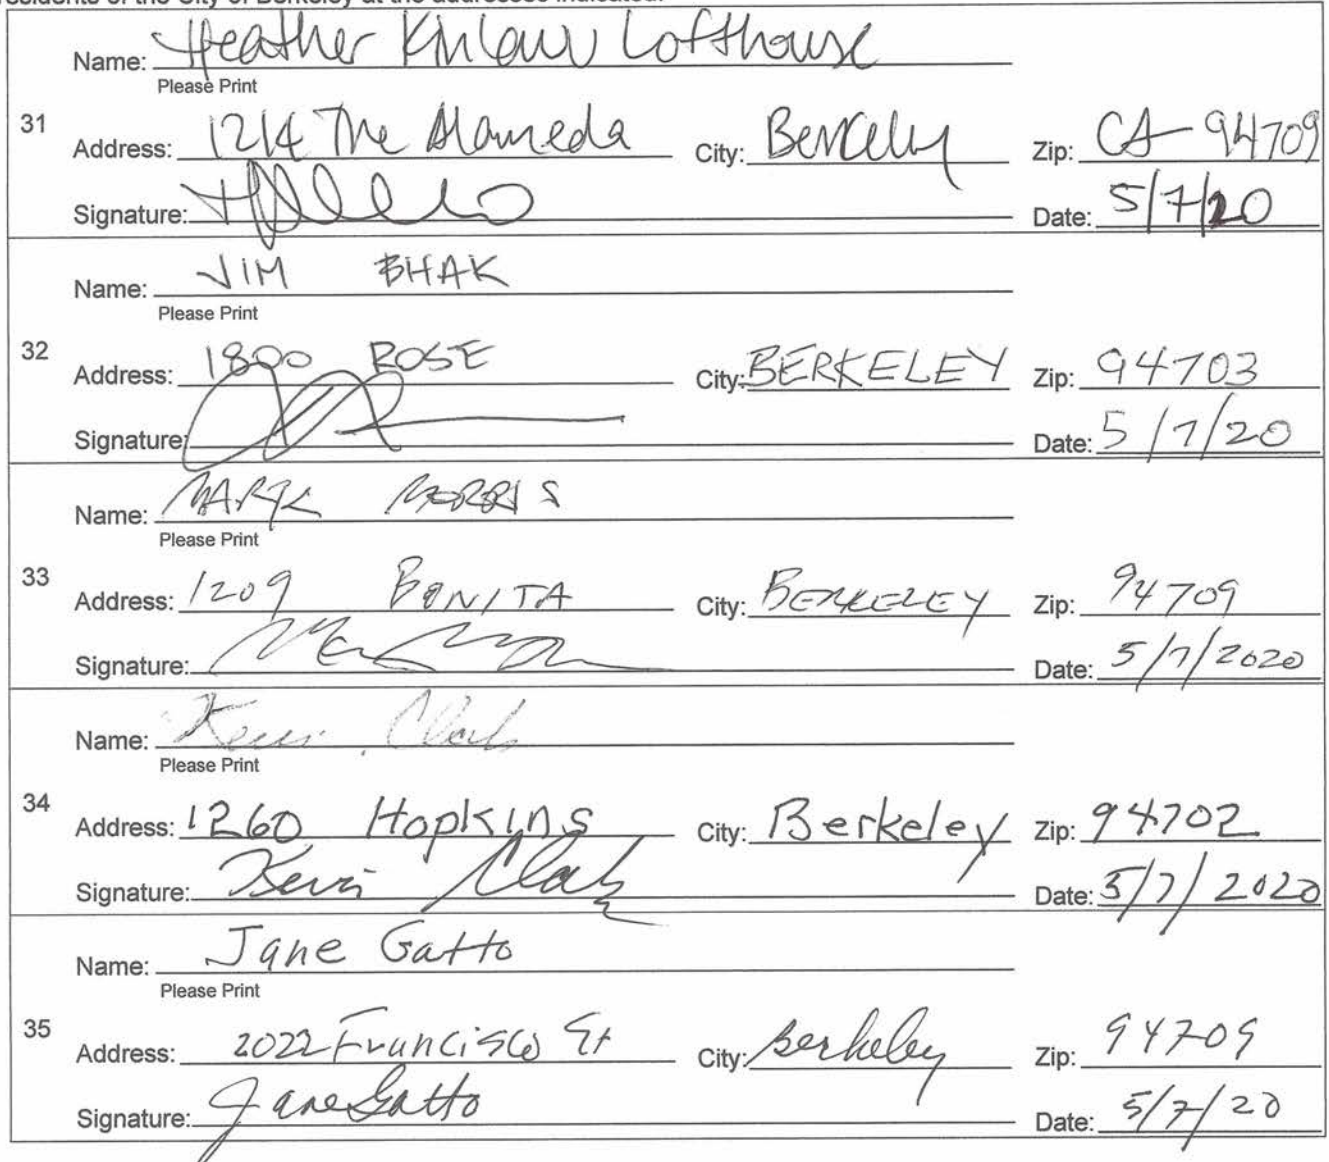 residents of the City of Berkeley at the addresses indicated.
Name: Heather Kinlaw Lofthouse
Please Print
31
Address: 1214 The Alameda City: Berkeley Zip: CA 94709
Signature: Date: 5/7/20
Name: JIM BHAK
Please Print
32
Address: 1800 ROSE City: BERKELEY Zip: 94703
Signature: Date: 5/7/20
Name: MARK MORRIS
Please Print
33
Address: 1209 BONITA City: BERKELEY Zip: 94709
Signature: Date: 5/7/2020
Name: Kevin Clark
Please Print
34
Address: 1260 Hopkins City: Berkeley Zip: 94702
Signature: Kevin Clark Date: 5/7/2020
Name: Jane Gatto
Please Print
35
Address: 2022 Francisco St City: Berkeley Zip: 94709
Signature: Jane Gatto Date: 5/7/20